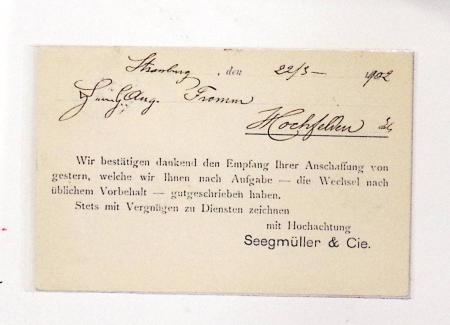 Strassburg, den 22/5 – 1902
Aug. Fromm
Hochfelden
Wir bestätigen dankend den Empfang Ihrer Anschaffung von
gestern, welche wir Ihnen nach Aufgabe — die Wechsel nach
üblichem Vorbehalt — gutgeschrieben haben.
Stets mit Vergnügen zu Diensten zeichnen
mit Hochachtung
Seegmüller & Cie.